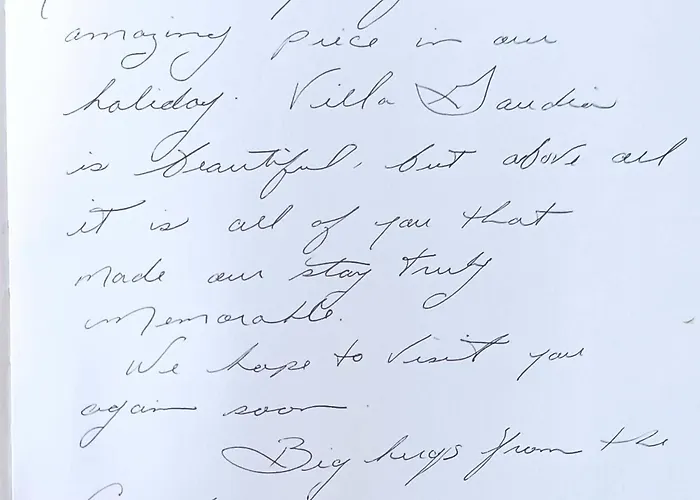 amazing piece in our
holiday. Villa Gaudia
is beautiful, but above all
it is all of you that
made our stay truly
memorable.
We hope to visit you
again soon.
Big hugs from the